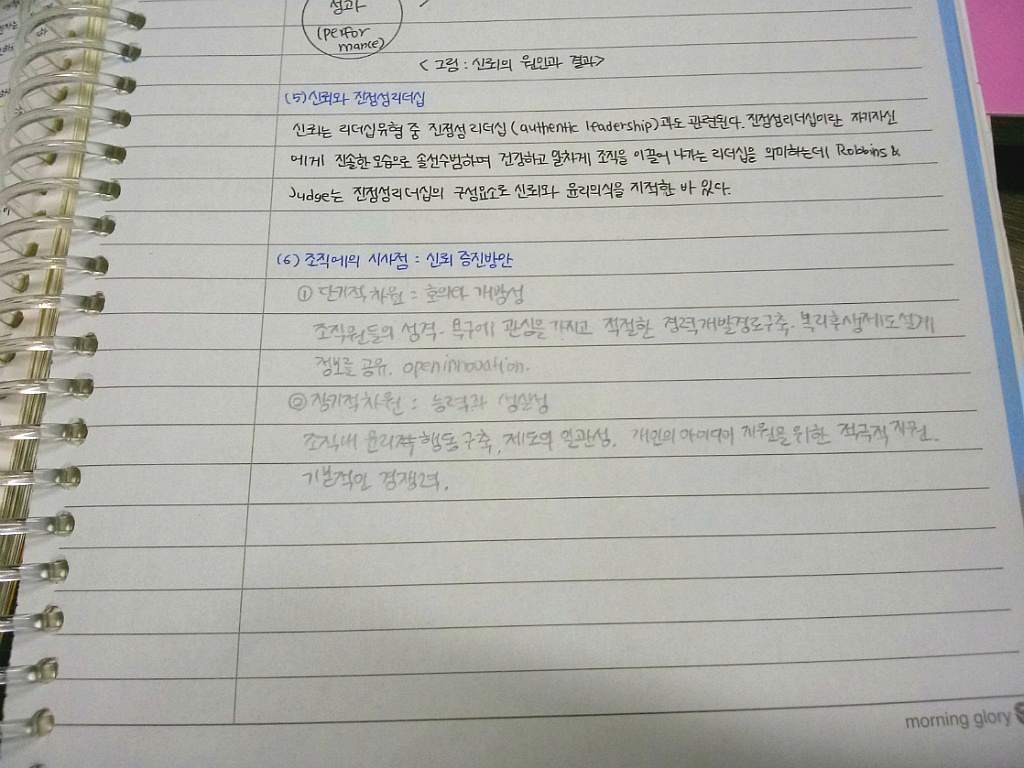 성과
(perfor
mance)
<그림 : 신뢰의 원인과 결과>
(5) 신뢰와 진정성리더십
신뢰는 리더십유형 중 진정성 리더십(authentic leadership)과도 관련된다. 진정성리더십이란 자기자신
에게 진솔한 모습으로 솔선수범하며 건강하고 알차게 조직을 이끌어 나가는 리더십을 의미하는데 Robbins &
Judge는 진정성리더십의 구성요소로 신뢰와 윤리의식을 지적한 바 있다.
(6) 조직에의 시사점 : 신뢰 증진방안
① 단기적 차원 : 호의와 개방성
조직원들의 성격·욕구에 관심을 가지고 적절한 경력개발경로구축·복리후생제도설계
정보를 공유. open innovation.
② 장기적차원 : 능력과 성실성
조직내 윤리적 행동 구축, 제도의 일관성, 개인의 아이디어 지원을 위한 적극적 지원.
기본적인 경쟁력.
morning glory